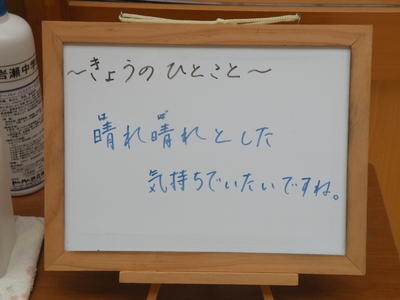 ～きょうの ひとこと～
晴れ晴れとした
気持ちでいたいですね。
岩瀬中学